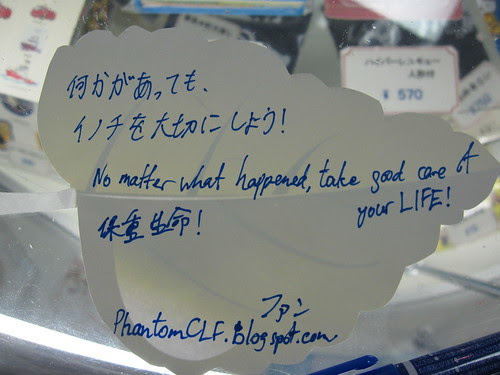 何かがあっても、
イノチを大切にしよう!
No matter what happened, take good care of
your LIFE!
保重生命!
ファン
PhantomCLF.Blogspot.com
ハイパーレスキュー
人形付
¥ 570